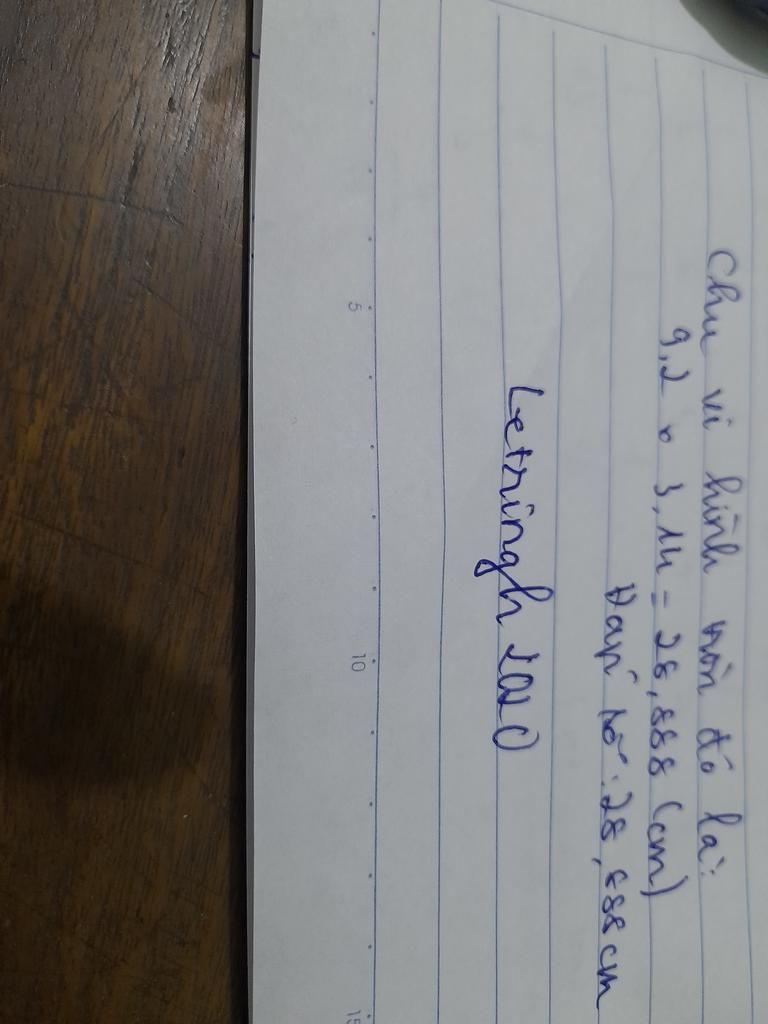 Chu vi hình tròn đó là:
9,2 x 3,14 = 28,888 (cm)
Đáp số: 28,888 cm
Letringh2020
5
10
15